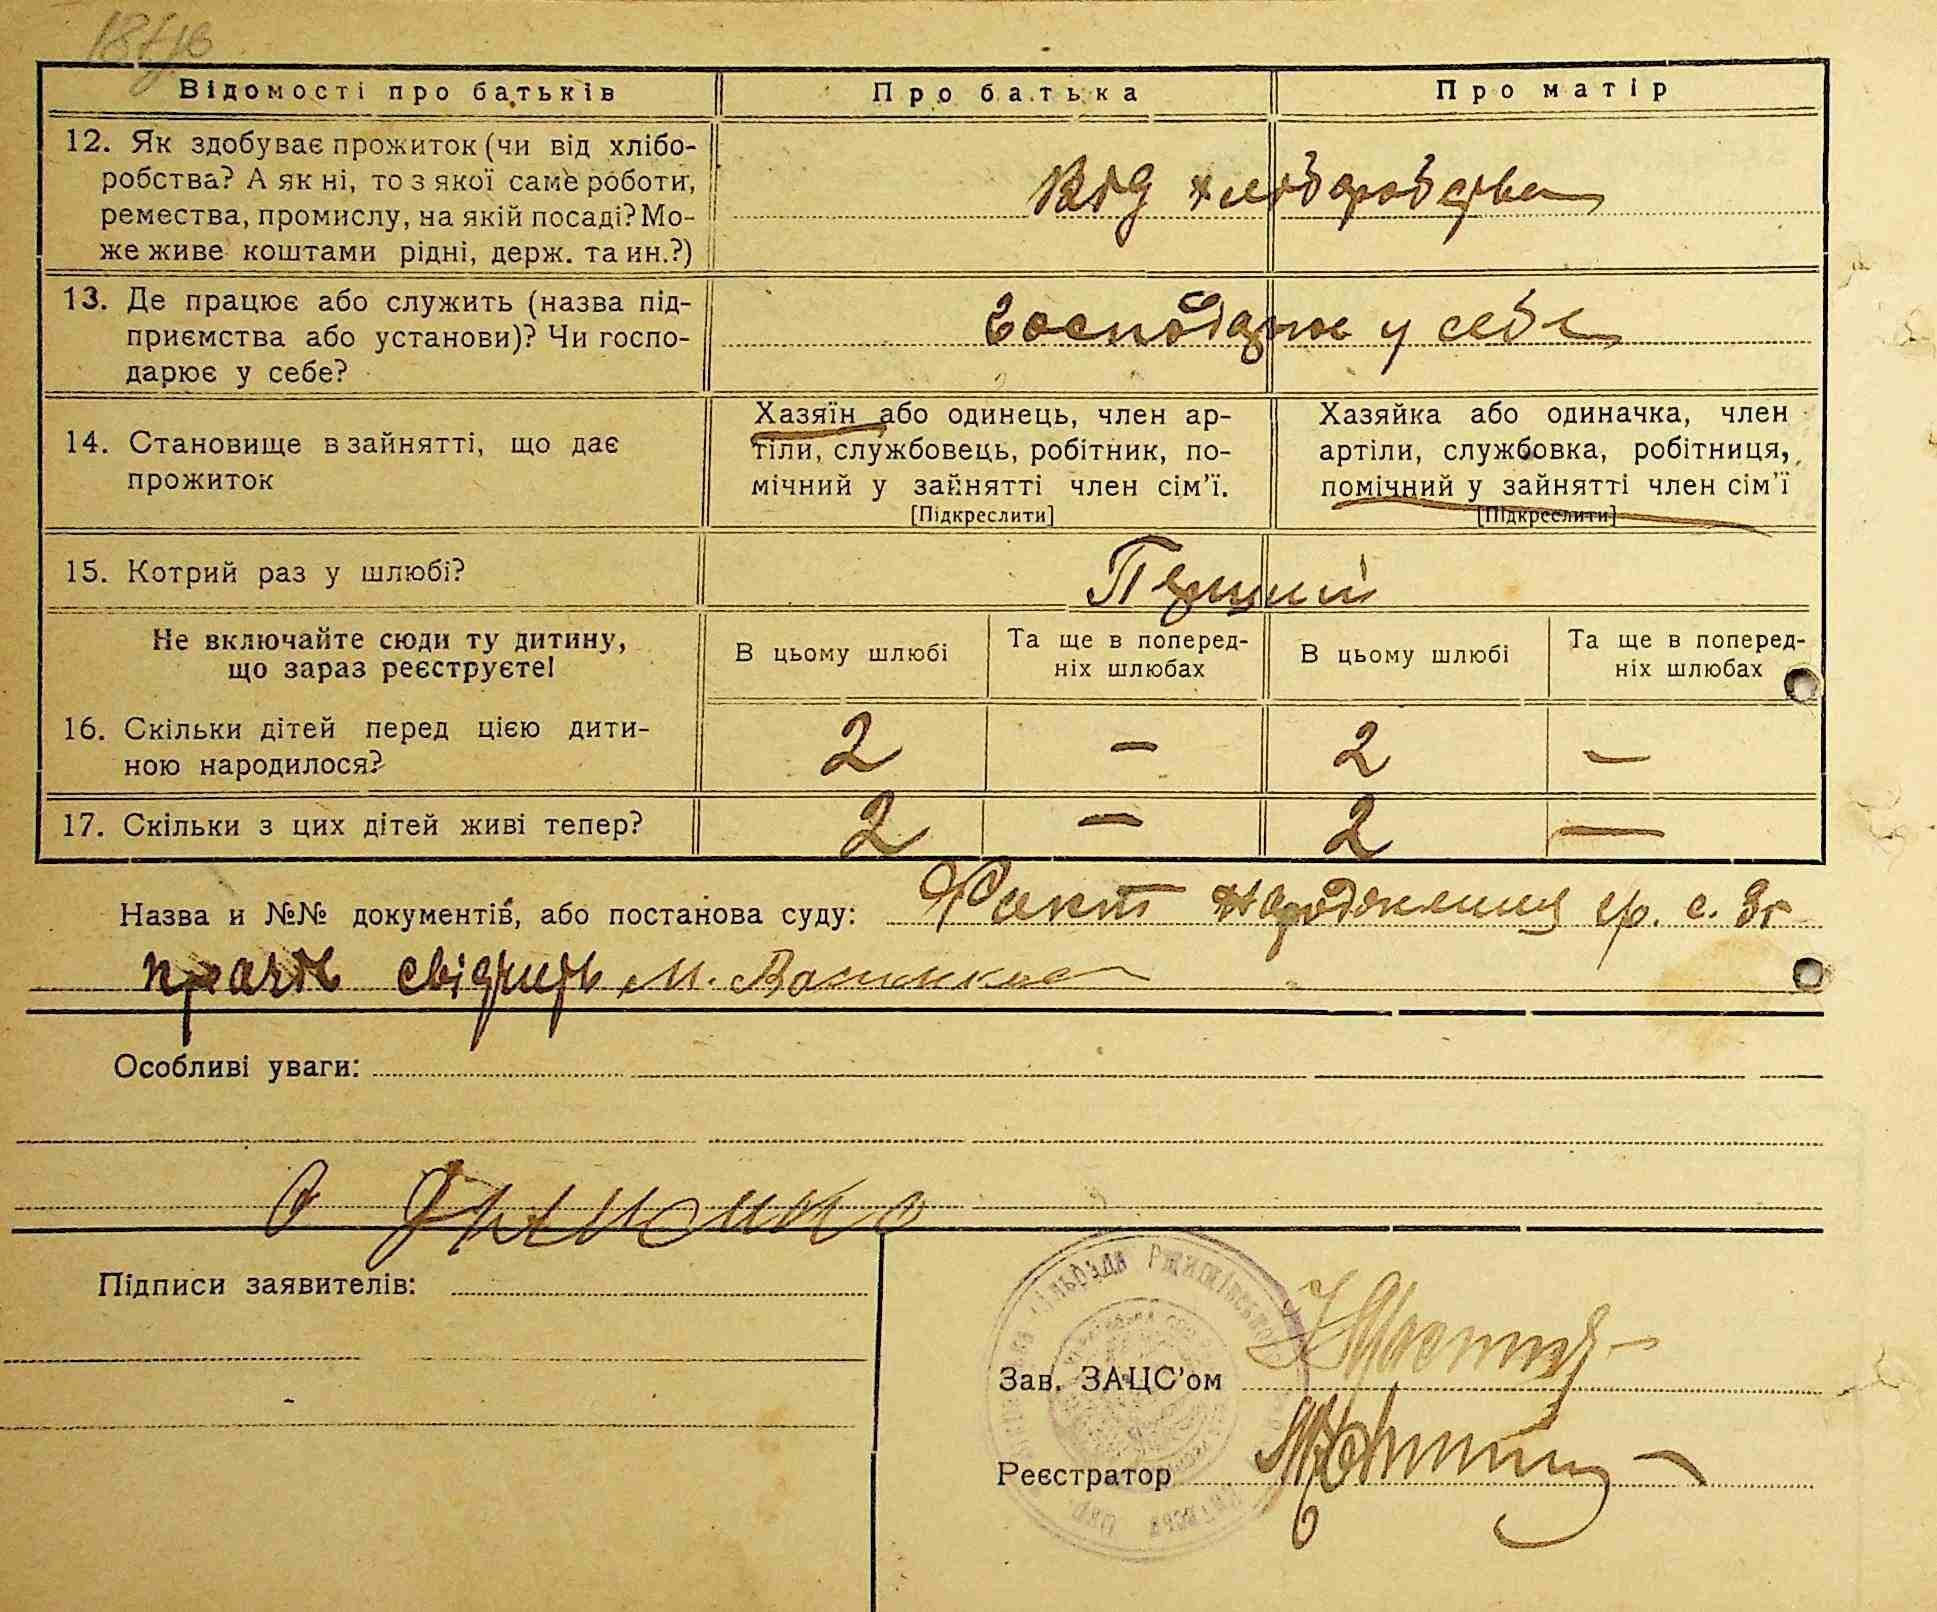 Відомості про батьків
Про батька
Про матір
12. Як здобуває прожиток (чи від хлібо-
робства? А як ні, то з якої саме роботи,
ремества, промислу, на якій посаді? Мо-
же живе коштами рідні, держ. та ин.?)
Від хліборобства
13. Де працює або служить (назва під-
приємства або установи)? Чи госпо-
дарює у себе?
Господарює у себе
14. Становище в зайнятті, що дає
прожиток
Хазяїн або одинець, член ар-
тіли, службовець, робітник, по-
мічний у зайнятті член сім'ї.
[Підкреслити]
Хазяйка або одиначка, член
артіли, службовка, робітниця,
помічний у зайнятті член сім'ї
[Підкреслити]
15. Котрий раз у шлюбі?
Перший
Не включайте сюди ту дитину,
що зараз реєструєте!
В цьому шлюбі
Та ще в поперед-
ніх шлюбах
В цьому шлюбі
Та ще в поперед-
ніх шлюбах
16. Скільки дітей перед цією дити-
ною народилося?
2 — 2 —
17. Скільки з цих дітей живі тепер?
2 — 2 —
Назва и №№ документів, або постанова суду: Факт народження гр. с.
свідчить М.
Особливі уваги:
Підписи заявителів:
сільрада Ржищівського
Зав. ЗАЦС'ом
Реєстратор